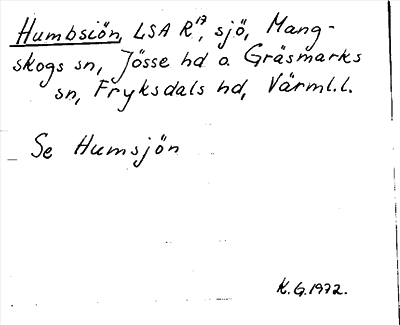 Humbsiön, LSA R17, sjö, Mang-
skogs sn, Jösse hd o. Gräsmarks
sn, Fryksdals hd, Värml.l.
Se Humsjön
K.G.1972.